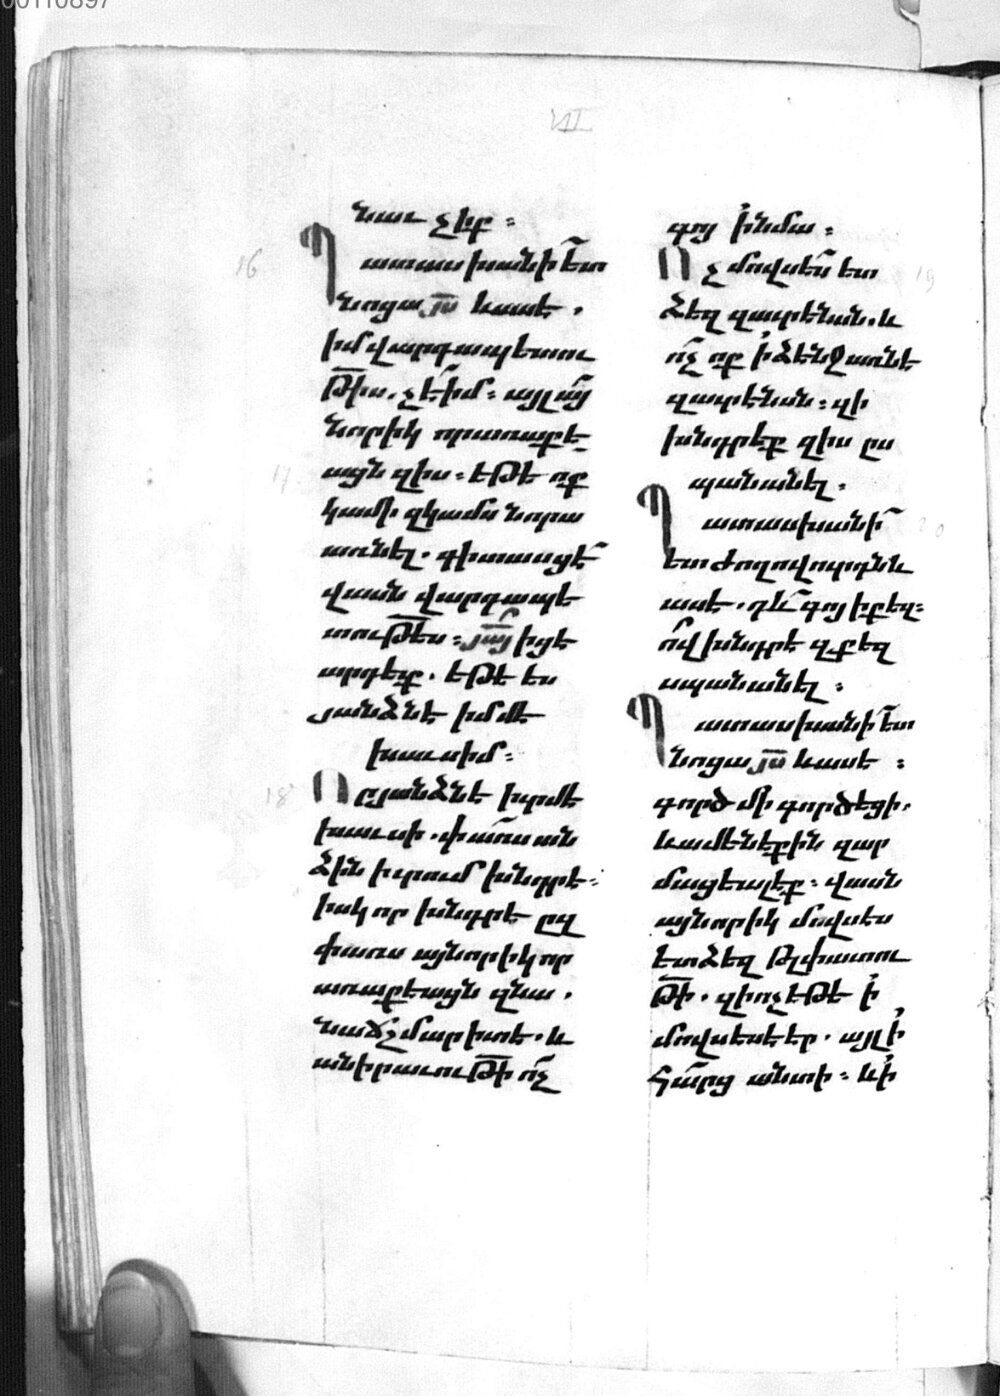 00110897
VII
նաւ չիք ։
16
Պատասխանի ետ
նոցա յս և ասէ ․
իմ վարդապետու
թիս ․ չէ իմ ։ այլ այն
նորիկ որ առաքե
այն զիս ։ եթե ոք
17
կամի զկամս նորա
առնել ․ գիտասցէ
վասն վարդապե
տութես ։ յայ իցե
արդեաք ․ եթե ես
յանձնէ իմմէ
խաւսիմ ։
18
Որ յանձնէ իւրմե
խաւսի ․ փառս ան
ձին իւրում խնդրե ։
իսկ որ խնդրե ըզ
փառս այնորիկ որ
առաքեացն զնա ․
նա ճշմարիտ է ․ և
անիրաւութի ոչ
գոյ ի նմա ։
19
Ոչ մովսես ետ
ձեզ զաւրենսն ․ և
ոչ ոք ի ձենջ առնէ
զաւրենսն ։ զի
խնդրեք զիս ըս
պանանել ։
20
Պատասխանի
ետ ժողովուրդն և
ասե ․ դև գոյ ի քեզ ։
ով խնդրե զքեզ
սպանանել ։
Պատասխանի ետ
նոցա յս և ասե ։
գործ մի գործեցի ․
և ամենեքին զար
մացեալ եք ։ վասն
այնորիկ մովսես
ետ ձեզ թլփատու
թի ․ զի ոչ եթե ի
մովսեսե էր ․ այլ ի
հարց անտի ։ և ի